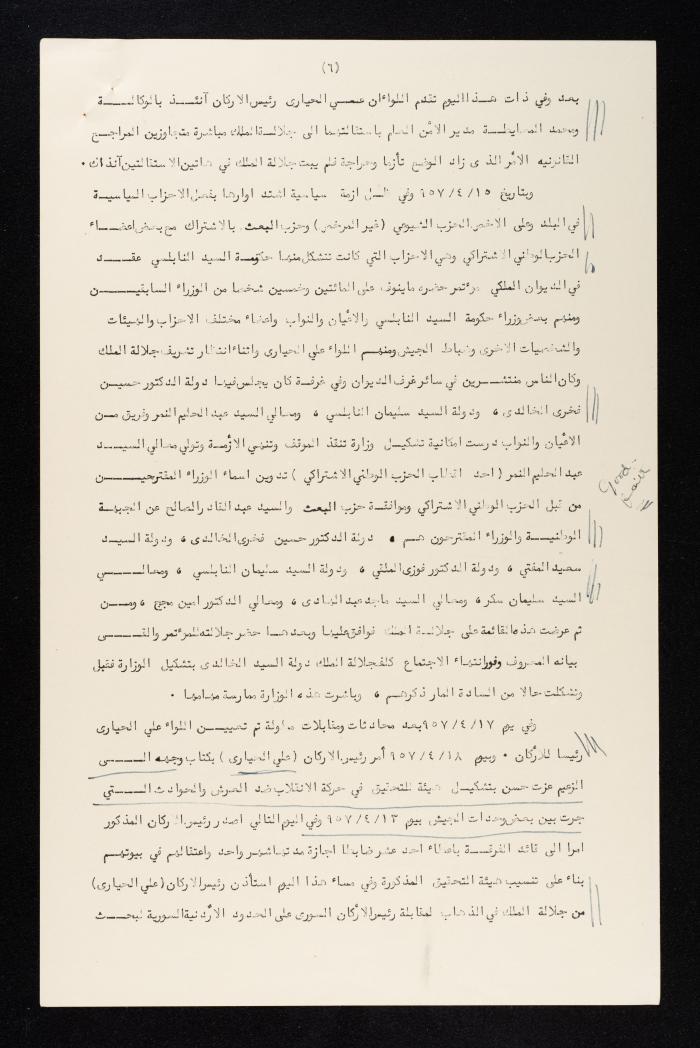 (٦)
بعد وفي ذات هذا اليوم تقدم اللواءان علي الحيارى رئيس الاركان آنئذ بالوكالة
ومحمد المعايطة مدير الأمن العام باستقالتهما الى جلالة الملك مباشرة متجاوزين المراجع
القانونيه الأمر الذى زاد الوضع تأزما وحراجة فلم يبت جلالة الملك في هاتين الاستقالتين آنذاك ٠
وبتاريخ ٩٥٧/٤/١٥ وفي ظل ازمة سياسية اشتد اوارها بفعل الاحزاب السياسية
في البلد وعلى الاخص الحزب الشيوعي (غير المرخص) وحزب البعث بالاشتراك مع بعض اعضاء
الحزب الوطني الاشتراكي وهي الاحزاب التي كانت تتشكل منها حكومة السيد النابلسي عقد
في الديوان الملكي مؤتمر حضره ماينوف على المائتين وخمسين شخصا من الوزراء السابقين
ومنهم بعض وزراء حكومة السيد النابلسي والاعيان والنواب واعضاء مختلف الاحزاب والهيئات
والشخصيات الاخرى وضباط الجيش ومنهم اللواء علي الحيارى واثناء انتظار تشريف جلالة الملك
وكان الناس منتشرين في سائر غرف الديوان وفي غرفة كان يجلس فيها دولة الدكتور حسين
فخرى الخالدى ، ودولة السيد سليمان النابلسي ، ومعالي السيد عبد الحليم النمر وفريق من
الاعيان والنواب درست امكانية تشكيل وزارة تنقذ الموقف وتنهي الأزمة وتولي معالي السيد
عبد الحليم النمر (احد اقطاب الحزب الوطني الاشتراكي) تدوين اسماء الوزراء المقترحين
من قبل الحزب الوطني الاشتراكي وموافقة حزب البعث والسيد عبد القادر الصالح عن الجبهة
Good faith
الوطنية والوزراء المقترحون هم ٠ دولة الدكتور حسين فخرى الخالدى ، ودولة السيد
سعيد المفتي ، ودولة الدكتور فوزى الملقي ، ودولة السيد سليمان النابلسي ، ومعالي
السيد سليمان سكر ، ومعالي السيد ماجد عبد الهادى ، ومعالي الدكتور امين مجج ، ومن
ثم عرضت هذه القائمة على جلالة الملك فوافق عليها وبعدها حضر جلالته للمؤتمر والقى
بيانه المعروف وفور انتهاء الاجتماع كلف جلالة الملك دولة السيد الخالدى بتشكيل الوزارة فقبل
وتشكلت حالا من السادة المار ذكرهم ، وباشرت هذه الوزارة ممارسة مهامها ٠
وفي يوم ٩٥٧/٤/١٧ بعد محادثات ومقابلات مطولة تم تعيين اللواء علي الحيارى
رئيسا للأركان ٠ وبيوم ٩٥٧/٤/١٨ أمر رئيس الاركان (علي الحيارى) بكتاب وجهه الى
الزعيم عزت حسن بتشكيل هيئة للتحقيق في حركة الانقلاب ضد العرش والحوادث التي
جرت بين بعض وحدات الجيش بيوم ٩٥٧/٤/١٣ وفي اليوم التالي اصدر رئيس الاركان المذكور
امرا الى قائد الفرقة باعطاء احد عشر ضابطا اجازة مدتها شهر واحد واعتقالهم في بيوتهم
بناء على تنسيب هيئة التحقيق المذكورة وفي مساء هذا اليوم استأذن رئيس الاركان (علي الحيارى)
من جلالة الملك في الذهاب لمقابلة رئيس الأركان السورى على الحدود الأردنية السورية لبحث